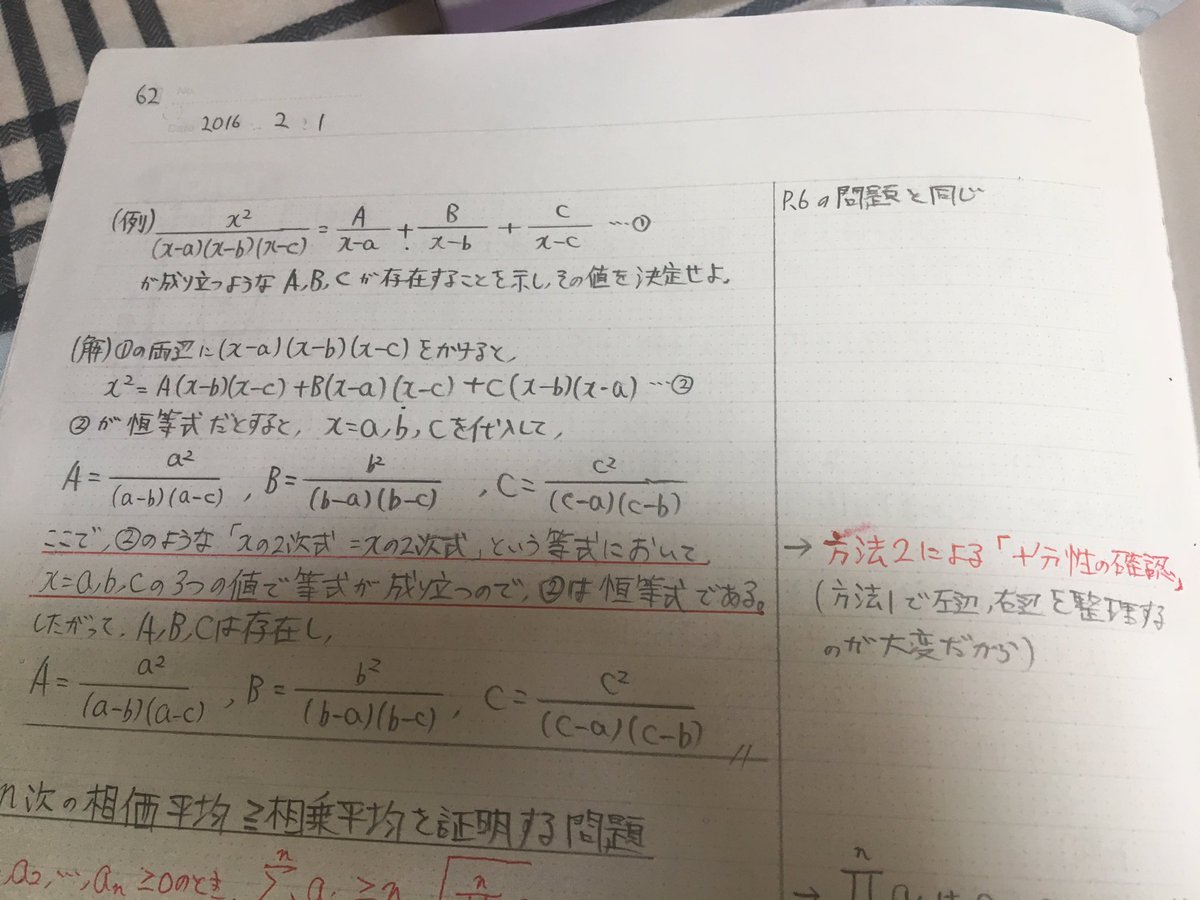 62
2016 2 1
(例) x²/((x-a)(x-b)(x-c)) = A/(x-a) + B/(x-b) + C/(x-c) …①
P.6の問題と同じ
が成り立つような A, B, C が存在することを示し,その値を決定せよ。
(解)①の両辺に(x-a)(x-b)(x-c)をかけると,
x²=A(x-b)(x-c)+B(x-a)(x-c)+C(x-b)(x-a) …②
②が恒等式だとすると, x=a, b, c を代入して,
A = a²/((a-b)(a-c)), B = b²/((b-a)(b-c)), C = c²/((c-a)(c-b))
ここで,②のような「xの2次式=xの2次式」という等式において,
x=a,b,cの3つの値で等式が成り立つので,②は恒等式である。
→ 方法2による「十分性の確認」
(方法1で左辺,右辺を整理する
のが大変だから)
したがって, A, B, Cは存在し,
A = a²/((a-b)(a-c)), B = b²/((b-a)(b-c)), C = c²/((c-a)(c-b))
n次の相価平均≧相乗平均を証明する問題
a₂, …, aₙ ≧0のとき,